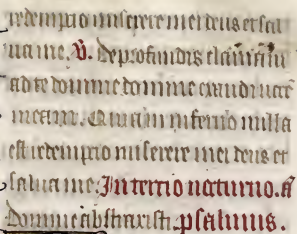 redemptio miserere mei deus et sal
ua me. V. De profundis clamaui
ad te domine domine exaudi uocē
meam. Quia in inferno nulla
est redemptio miserere mei deus et
salua me. In tertio nocturno. a
Domine abstraxisti. psalmus.